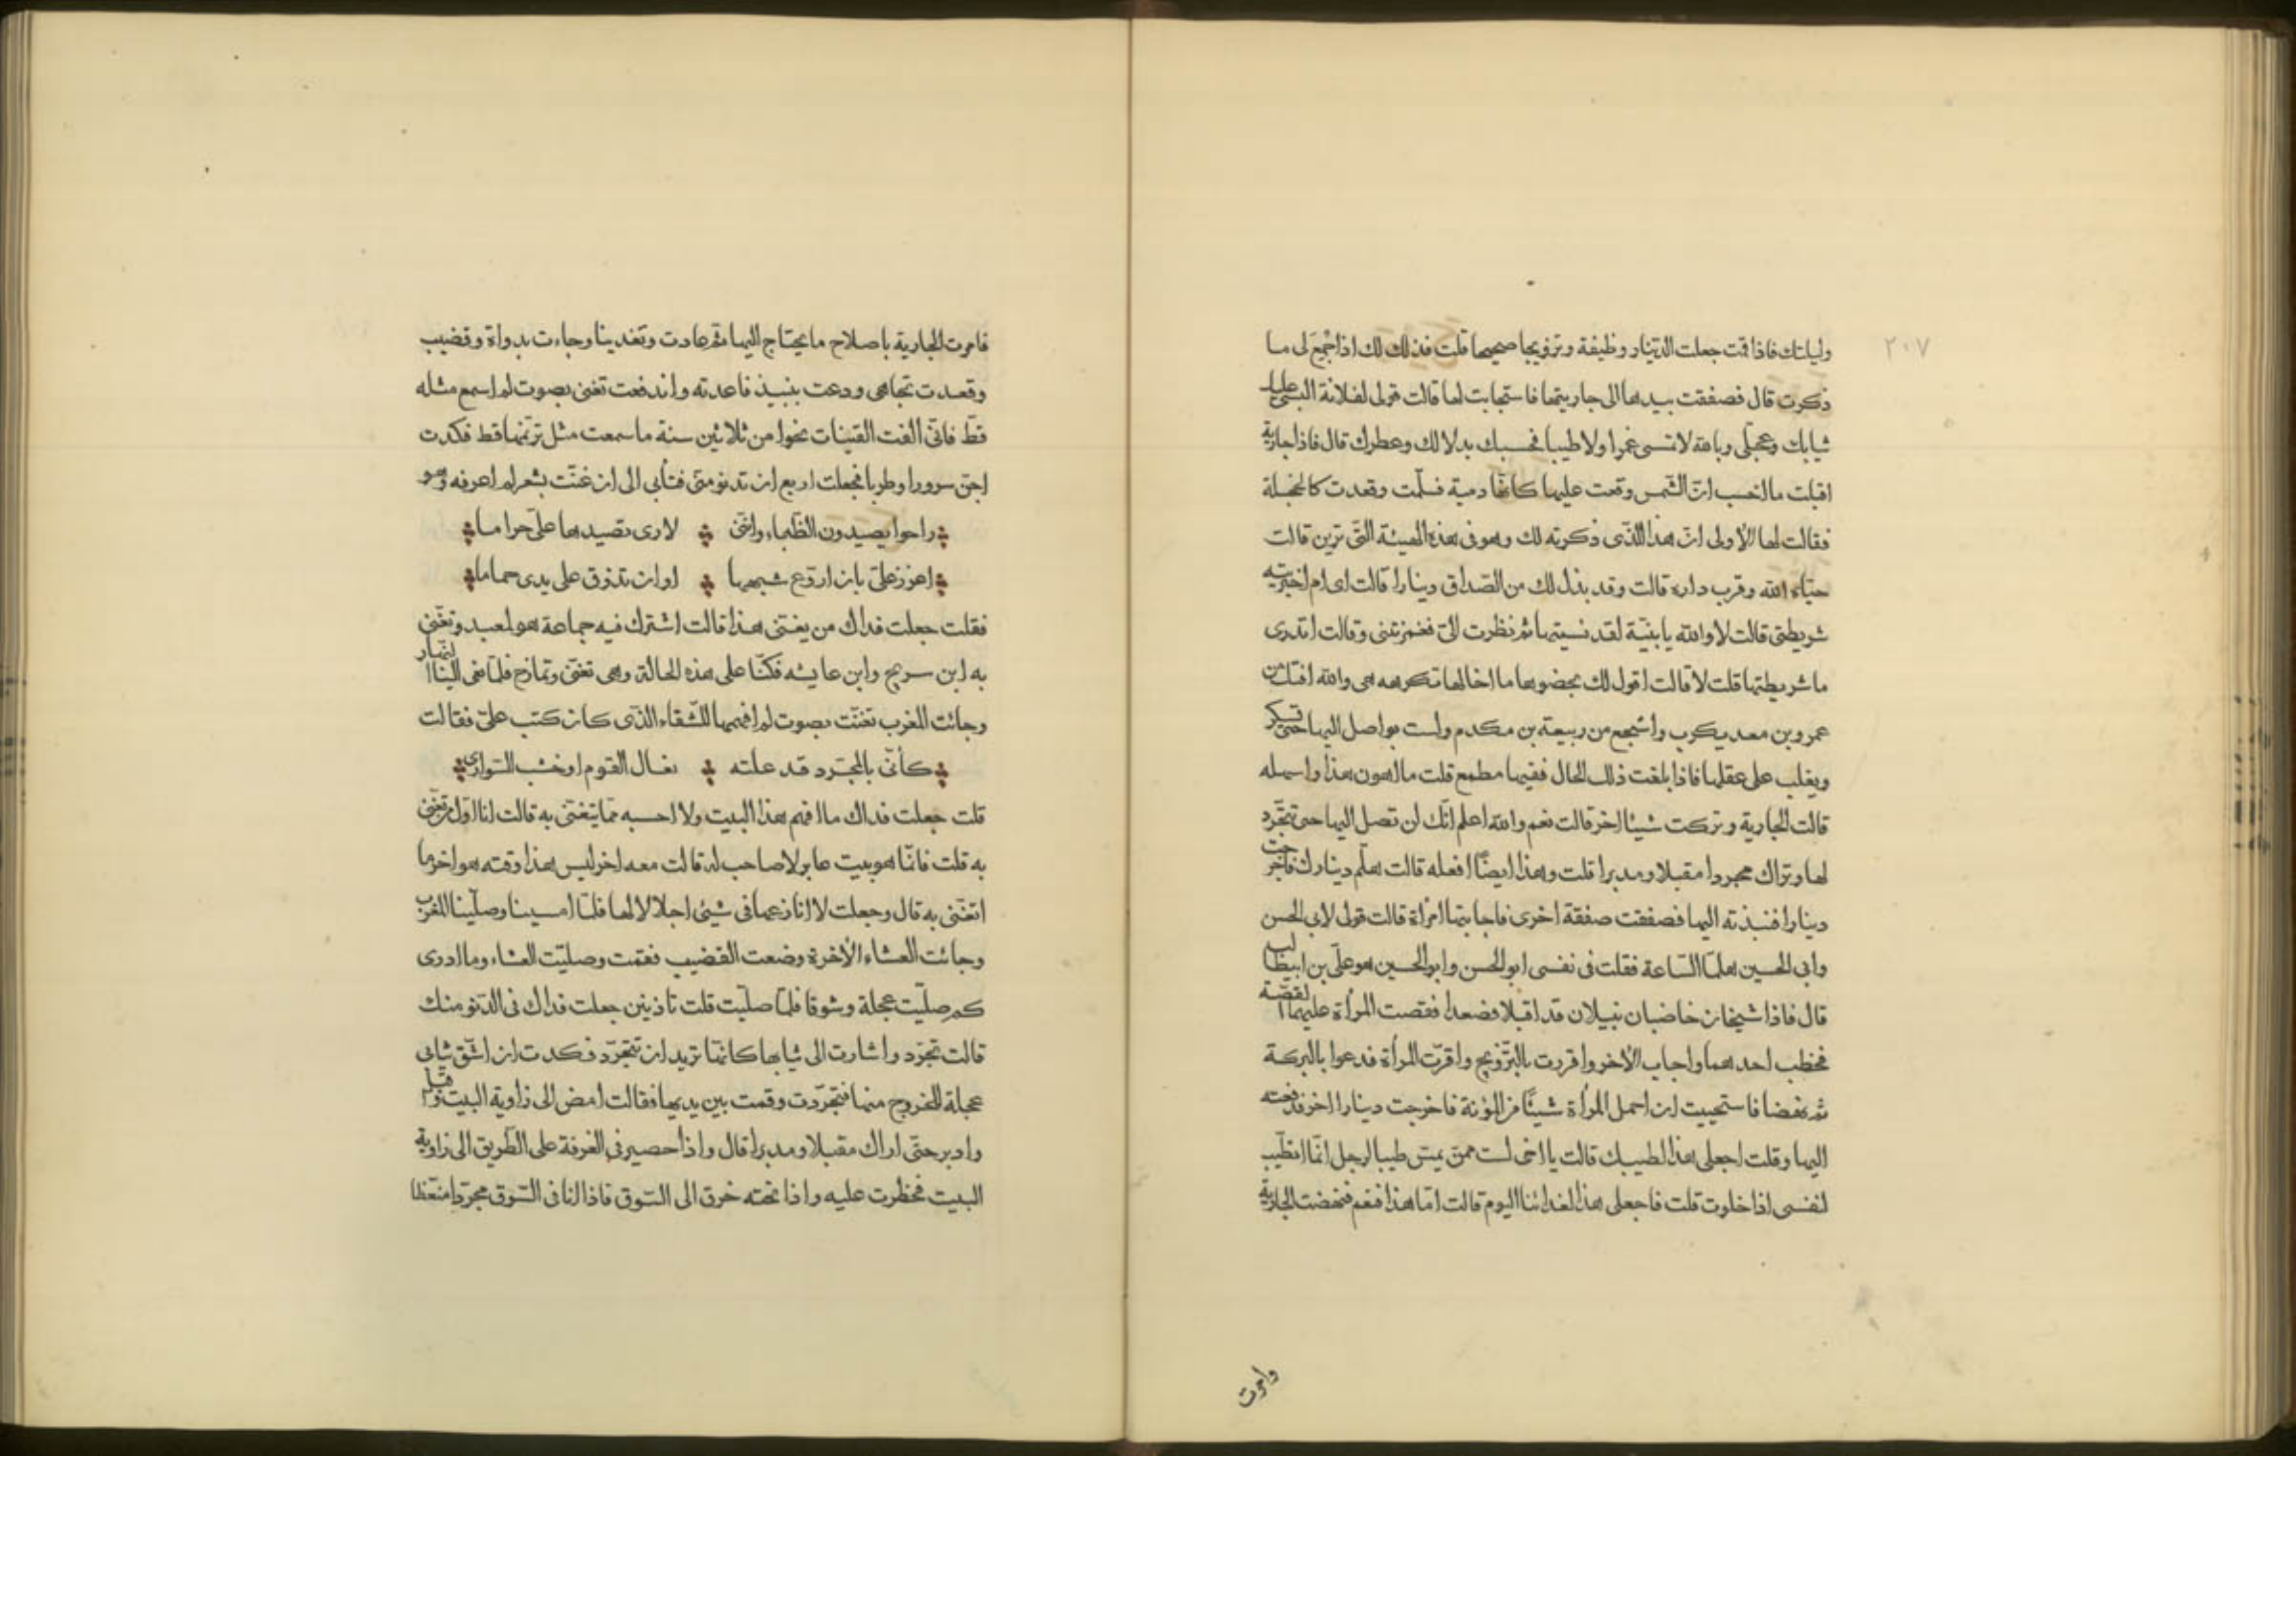 ٢٠٧
وليلتك فاذا اقمت جعلت الدينار وظيفة وتزويجا صحيحا قلت فذلك لك اذا اجمع لى ما
ذكرت قال فصفقت بيدها الى جاريتها فاستجابت لها قالت قولى لفلانة البسى عليك
ثيابك وعجلى وبالله لا تمسى غمرا ولا طيبا فحسبك بدلالك وعطرك قال فاذا جارية
اقبلت ما احسب ان الشمس وقعت عليها كانها دمية فسلمت وقعدت كالخجلة
فقالت لها الأولى ان هذا الذى ذكرته لك وهو فى هذه الهيئة التى ترين قالت
حياه الله وقرب داره قالت وقد بذل لك من الصداق دينارا قالت اى ام اخبرتيه
شريطتى قالت لا والله يا بنية لقد نسيتها ثم نظرت الى فغمزتنى وقالت اتدرى
ما شريطتها قلت لا قالت اقول لك بحضورها ما اخالها تكرهه هى والله افتك من
عمرو بن معد يكرب واشجع من ربيعة بن مكدم ولست بواصل اليها حتى تسكر
ويغلب على عقلها فاذا بلغت ذلك الحال ففيها مطمع قلت ما اهون هذا واسهله
قالت الجارية وتركت شيئا اخر قالت نعم والله اعلم انك لن تصل اليها حتى تتجرد
لها وتراك مجردا مقبلا ومدبرا قلت وهذا ايضا افعله قالت هلم دينارك فاخرجت
دينارا فنبذته اليها فصفقت صفقة اخرى فاجابتها امرأة قالت قولى لأبى الحسن
وابى الحسين هلما الساعة فقلت فى نفسى ابو الحسن وابو الحسين هو على بن ابيطالب
قال فاذا شيخان خاضبان نبيلان قد اقبلا فصعدا فقصت المرأة عليهما القصة
فخطب احدهما واجاب الأخر واقررت بالتزويج واقرت المرأة فدعوا بالبركة
ثم نهضا فاستحييت ان احمل المرأة شيئا من المؤنة فاخرجت دينارا اخر فدفعته
اليها وقلت اجعلى هذا لطيبك قالت يا اخى لست ممن يمس طيبا لرجل انما اتطيب
لنفسى اذا خلوت قلت فاجعلى هذا لغدائنا اليوم قالت اما هذا فنعم فنهضت الجارية
وامرت
فامرت الجارية باصلاح ما يحتاج اليها ثم عادت وتغدينا وجاءت بدواة وقضيب
وقعدت تجاهى ودعت بنبيذ فاعدته واندفعت تغنى بصوت لم اسمع مثله
قط فانى الفت القينات نحوا من ثلاثين سنة ما سمعت مثل ترنمها قط فكدت
اجن سرورا وطربا فجعلت اربع ان تدنو منى فتأبى الى ان غنت بشعر لم اعرفه وهو
راحوا يصيدون الظباء واننى لارى تصيدها على حراما
اعزز على بان اروع شبهها او ان تذوق على يدى حماما
فقلت جعلت فداك من يغنى هذا قالت اشترك فيه جماعة هو لمعبد وتغنى
به ابن سريج وابن عايشه فكنا على هذه الحالة وهى تغنى وتمازح فلما نعى الينا النهار
وجائت المغرب تغنت بصوت لم افهمه للشقاء الذى كان كتب على فقالت
كأنى بالمجرد قد علته نعال القوم او خشب السوارى
قلت جعلت فداك ما افهم هذا البيت ولا احسبه مما يتغنى به قالت انا اول من تغنى
به قلت فانما هو بيت عابر لا صاحب له قالت معه اخر ليس هذا وقته هو اخر ما
اتغنى به قال وجعلت لا انازعها فى شيئ اجلالا لها فلما امسينا وصلينا المغرب
وجائت العشاء الأخرة وضعت القضيب فقمت وصليت العشاء وما ادرى
كم صليت عجلة وشوقا فلما صليت قلت تاذنين جعلت فداك فى الدنو منك
قالت تجرد واشارت الى ثيابها كانها تريد ان تتجرد فكدت ان اشق ثيابى
عجلة للخروج منها فتجردت وقمت بين يديها فقالت امض الى زاوية البيت واقبل
وادبر حتى اراك مقبلا ومدبرا قال واذا حصير فى الغرفة على الطريق الى زاوية
البيت فخطرت عليه واذا تحته خرق الى السوق فاذا انا فى السوق مجردا منعظا